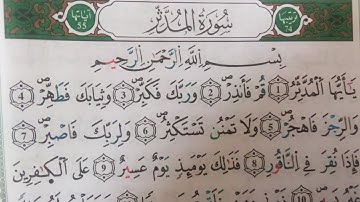 ترتيبها 74 سُورَةُ الْمُدَّثِّرِ آياتها 55
بِسْمِ اللَّهِ الرَّحْمَٰنِ الرَّحِيمِ
يَا أَيُّهَا الْمُدَّثِّرُ 1 قُمْ فَأَنذِرْ 2 وَرَبَّكَ فَكَبِّرْ 3 وَثِيَابَكَ فَطَهِّرْ 4
وَالرُّجْزَ فَاهْجُرْ 5 وَلَا تَمْنُن تَسْتَكْثِرُ 6 وَلِرَبِّكَ فَاصْبِرْ 7
فَإِذَا نُقِرَ فِي النَّاقُورِ 8 فَذَٰلِكَ يَوْمَئِذٍ يَوْمٌ عَسِيرٌ 9 عَلَى الْكَافِرِينَ